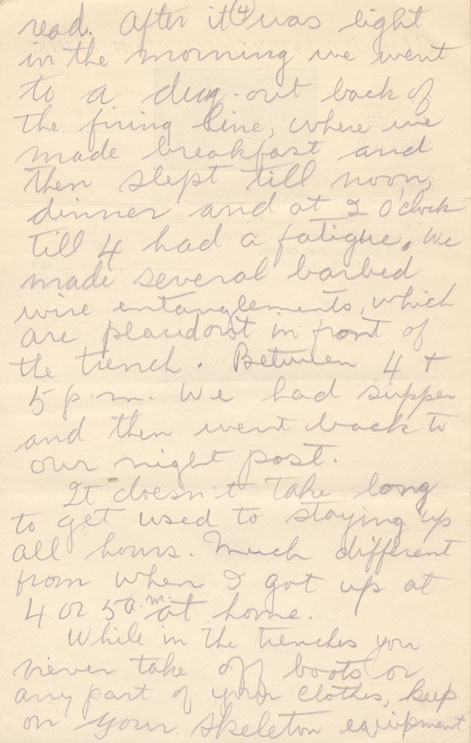 read. After it (4) was light
in the morning we went
to a dug-out back of
the firing line, where we
made breakfast and
then slept till noon,
dinner and at 2 O'clock
till 4 had a fatigue. We
made several barbed
wire entanglements, which
are placed out in front of
the trench. Between 4 &
5 p.m. We had supper
and then went back to
our night post.
It doesn't take long
to get used to staying up
all hours. Much different
from when I got up at
4 or 5 a.m. at home.
While in the trenches you
never take off boots or
any part of your clothes, keep
on your skeleton equipment